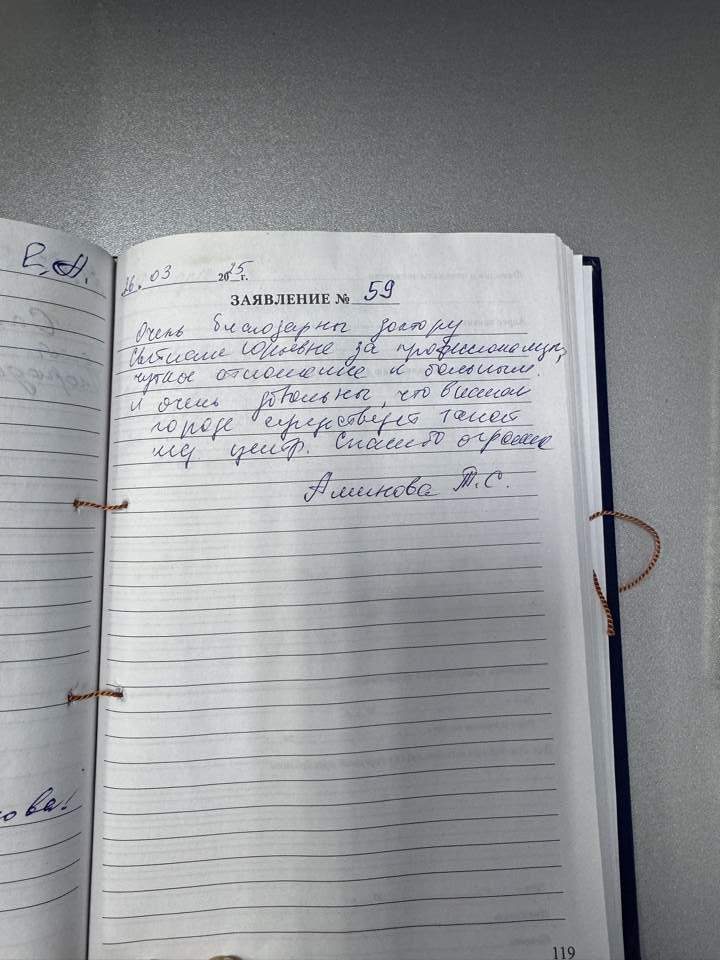 Э.Н.
26.03 2025 г.
ЗАЯВЛЕНИЕ № 59
Очень благодарны доктору
Светлане Юрьевне за профессионализм,
чуткое отношение к больным.
И очень довольны, что в нашем
городе существует такой
мед центр. Спасибо огромное
Аминова Т.С.
ова!
119